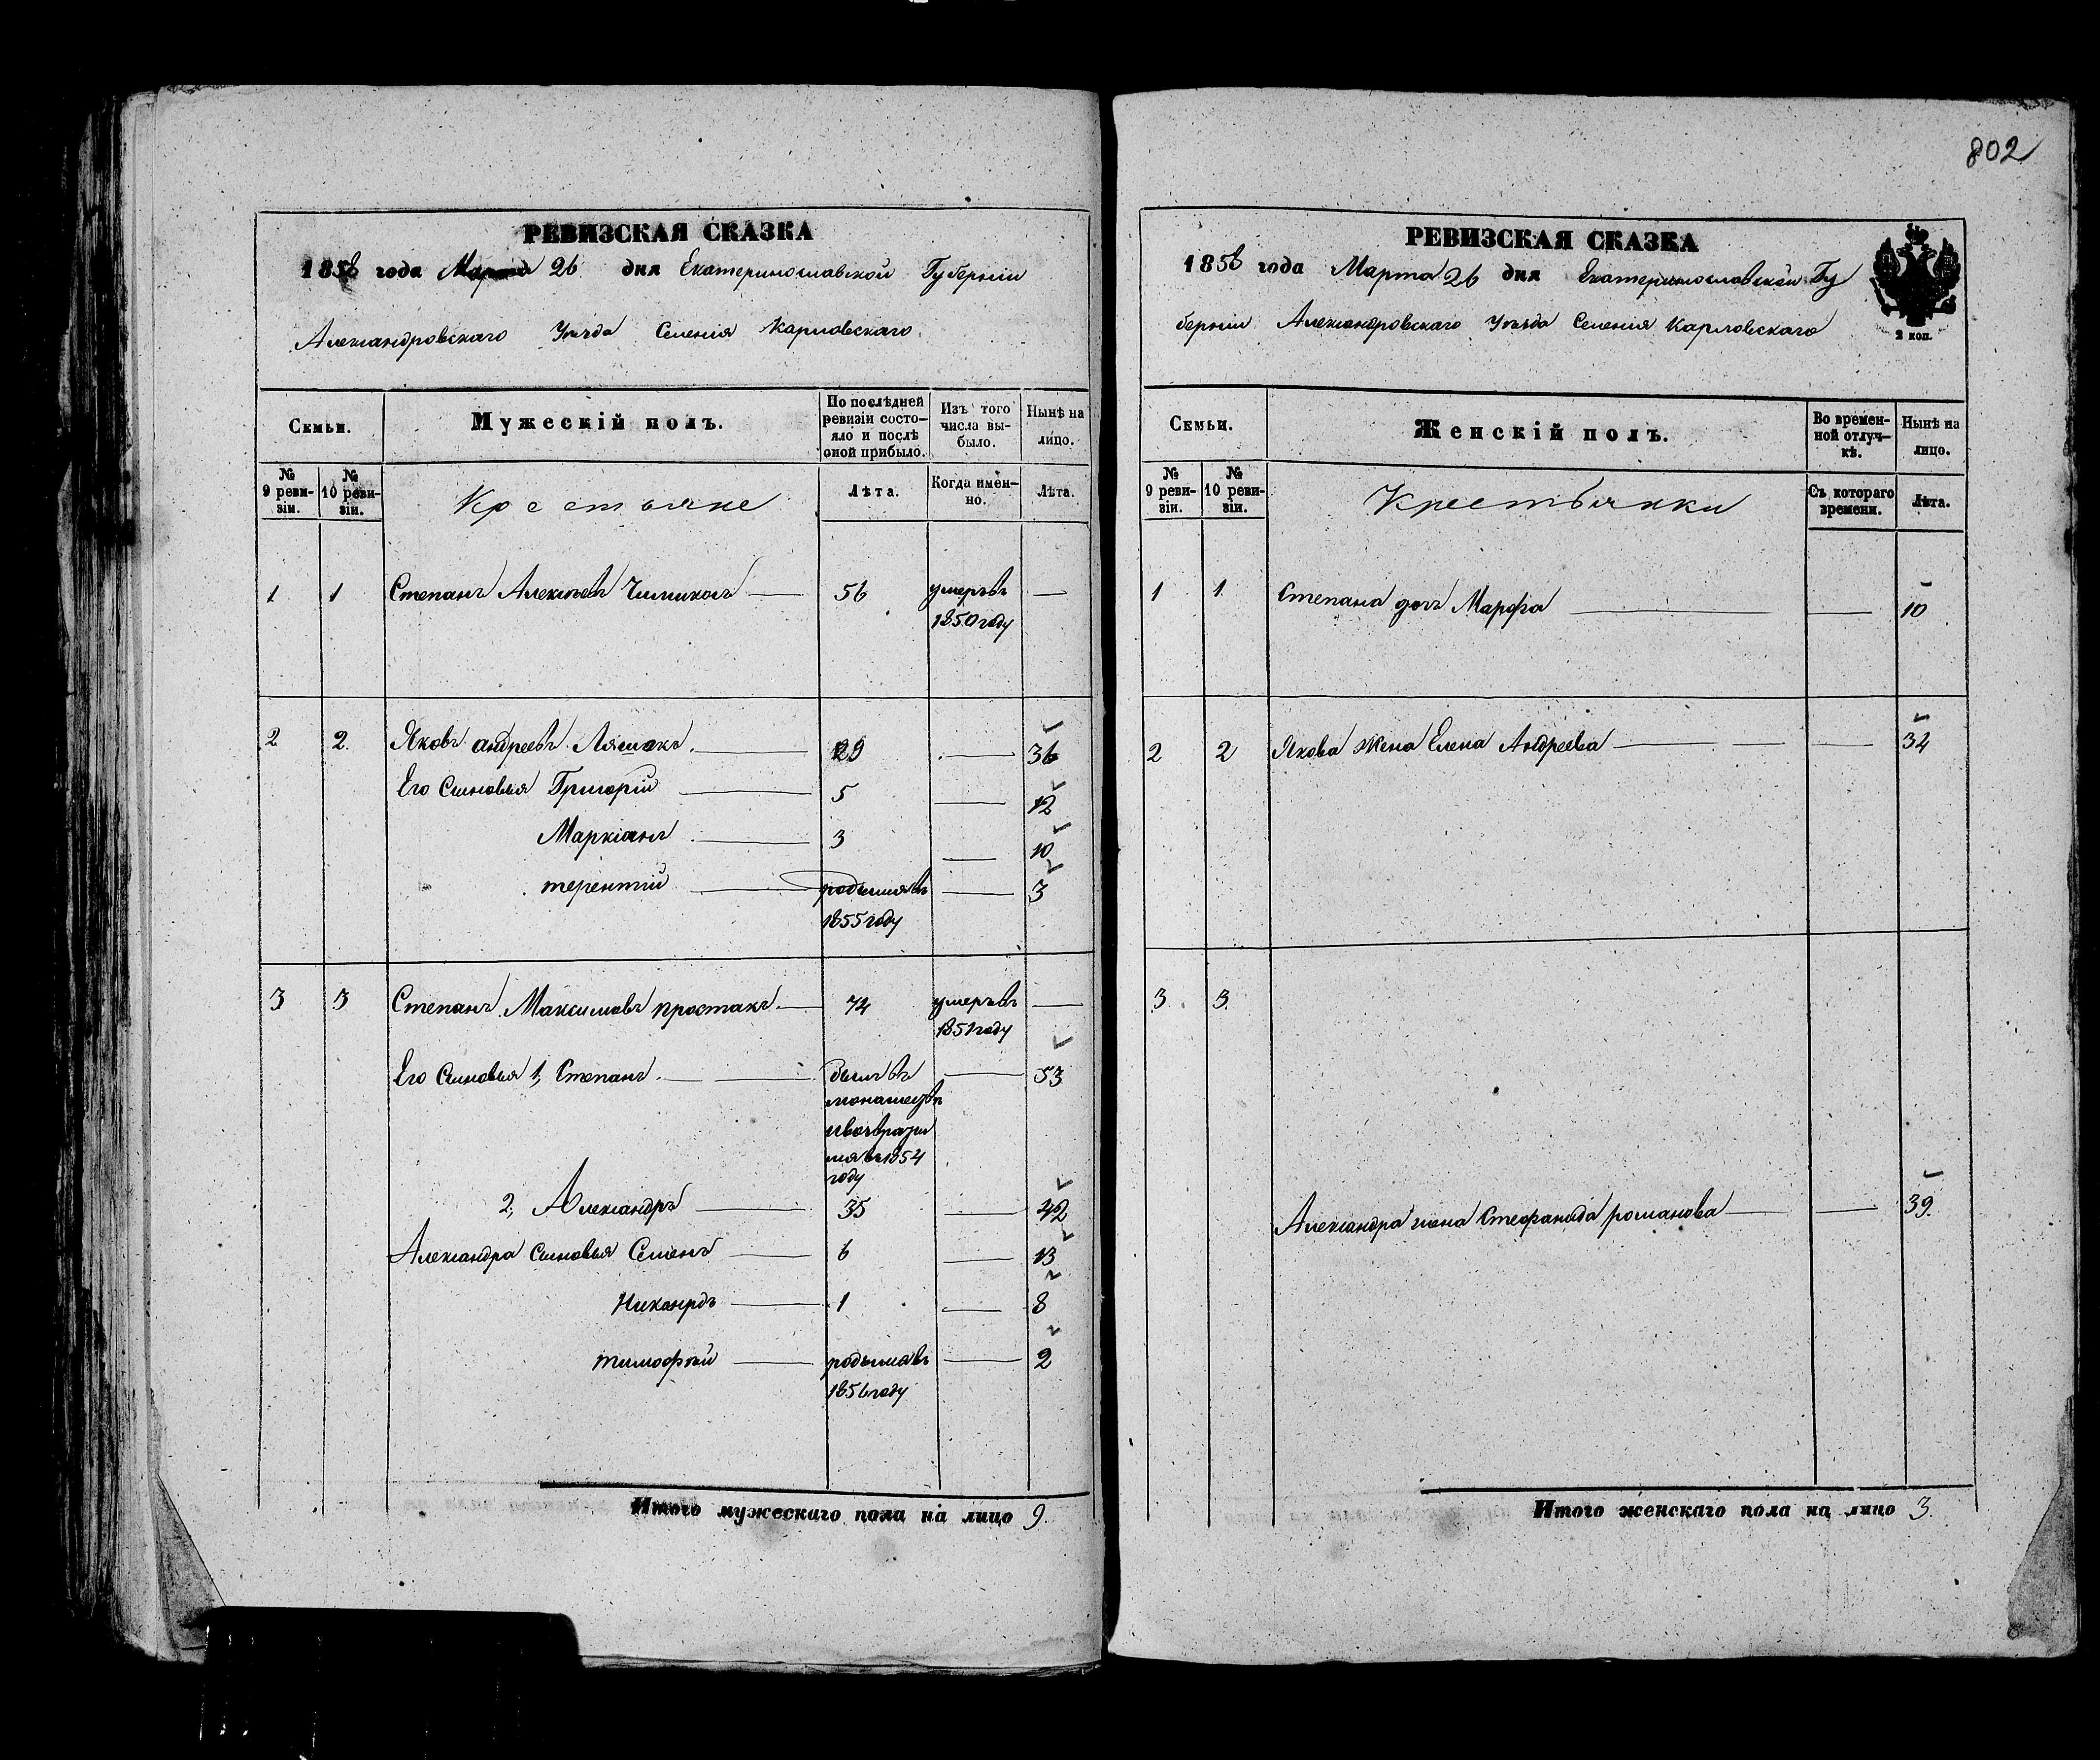 802
РЕВИЗСКАЯ СКАЗКА
1858 года Марта 26 дня Екатеринославской Губерніи
Александровскаго Уѣзда Селенія Карловскаго
Семьи.
Мужескій полъ.
По послѣдней ревизіи состо-
яло и послѣ
оной прибыло.
Изъ того
числа вы-
было.
Нынѣ на
лицо.
№
9 реви-
зіи.
№
10 реви-
зіи.
Крестьяне
Лѣта.
Когда имен-
но.
Лѣта.
1 1 Степанъ Алексѣевъ 56 умеръ въ —
1850 году
2 2. Яковъ андреевъ Ляшокъ. — 29 — 36
Его Сыновья Григорій — 5 — 12
Маркіанъ — 3 — 10
терентій — родился въ — 3
1855 году
3 3 Степанъ Максимовъ простакъ — 74 умеръ въ —
1851 году
Его Сыновья 1, Степанъ. — былъ въ — 53
и возврати
лся въ 1854
году
2, Александръ — 35 — 42
Александра Сыновья Семенъ — 6 — 13
Никандръ — 1 — 8
тимофѣй — родился въ — 2
1856 году
Итого мужескаго пола на лицо 9.
РЕВИЗСКАЯ СКАЗКА
1858 года Марта 26 дня Екатеринославской Гу
берніи Александровскаго Уѣзда Селенія Карловскаго
2 коп.
Семьи.
Женскій полъ.
Во времен-
ной отлуч-
кѣ.
Нынѣ на
лицо.
№
9 реви-
зіи.
№
10 реви-
зіи.
Крестьянки
Съ котораго
времени.
Лѣта.
1 1 Степана доч Марфа — — 10
2 2 Якова жена Елена Андреева — — 34
3. 3.
Александра жена Стефанида романова — — 39.
Итого женскаго пола на лицо 3.